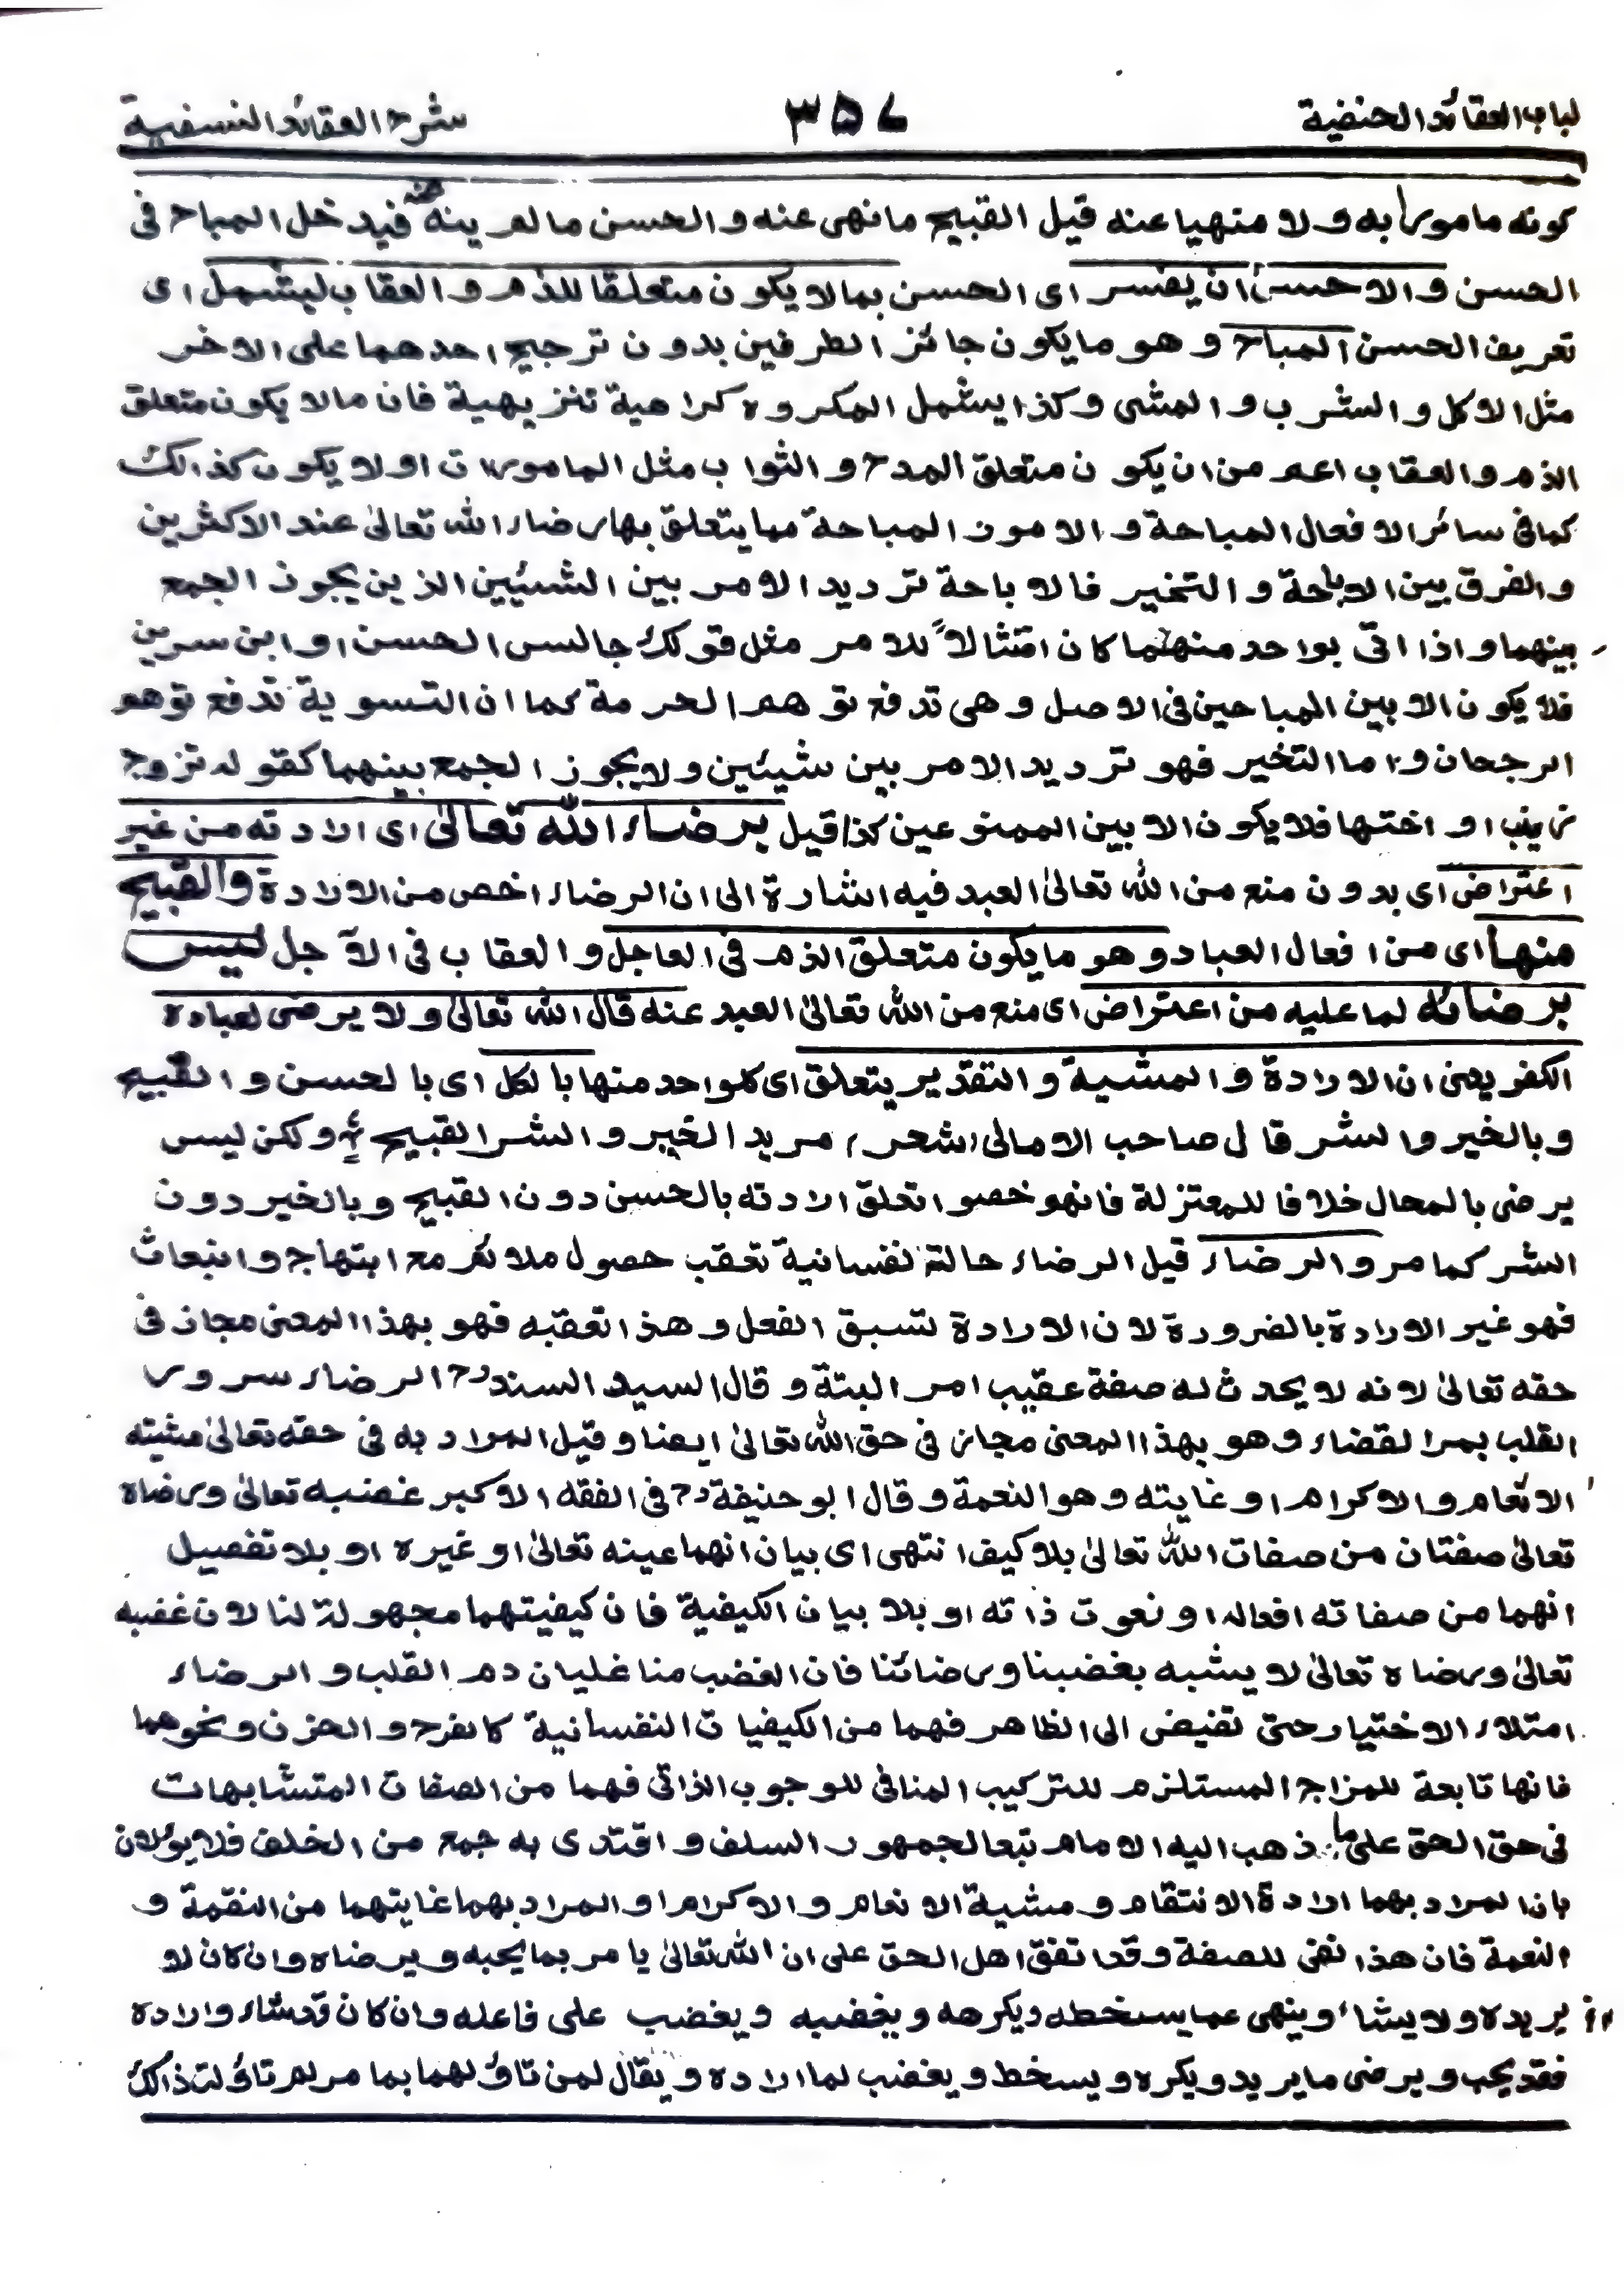 لباب العقائد الحنفية ٣٥٧ شرح العقائد النسفية
كونه مامورا به ولا منهيا عنه قيل القبيح مانهى عنه والحسن مالم ينه عنه فيدخل المباح فى
الحسن والاحسن ان يفسر اى الحسن بمالا يكون متعلقا للذم والعقاب ليشمل اى
تعريف الحسن المباح وهو مايكون جائز الطرفين بدون ترجيح احدهما على الاخر
مثل الاكل والشرب والمشى وكذا يشمل المكروه كراهية تنزيهية فان مالا يكون متعلق
الذم والعقاب اعم من ان يكون متعلق المدح والثواب مثل المامورات او لا يكون كذالك
كما فى سائر الافعال المباحة والامور المباحة مما يتعلق بها رضاء الله تعالىٰ عند الاكثرين
والفرق بين الاباحة والتخير فالاباحة ترديد الامر بين الشيئين الذين يجوز الجمع
بينهما واذا اتى بواحد منهما كان امتثالاً للامر مثل قولك جالس الحسن او ابن سرين
فلا يكون الا بين المباحين فى الاصل وهى تدفع توهم الحرمة كما ان التسوية تدفع توهم
الرجحان واما التخير فهو ترديد الامر بين شيئين ولا يجوز الجمع بينهما كقوله تزوج
زينب او اختها فلا يكون الا بين الممنوعين كذا قيل برضاء الله تعالىٰ اى ارادته من غير
اعتراض اى بدون منع من الله تعالىٰ العبد فيه اشارة الى ان الرضاء اخص من الارادة والقبيح
منها اى من افعال العباد وهو مايكون متعلق الذم فى العاجل والعقاب فى الآجل ليس
برضائه لما عليه من اعتراض اى منع من الله تعالىٰ العبد عنه قال الله تعالىٰ ولا يرضى لعباده
الكفر يعنى ان الارادة والمشية والتقدير يتعلق اى كلواحد منها بالكل اى بالحسن والقبيح
وبالخير والشر قال صاحب الامالى (شعر) مريد الخير والشر القبيح ؛ ولكن ليس
يرضى بالمحال خلافا للمعتزلة فانهم خصوا تعلق ارادته بالحسن دون القبيح وبالخير دون
الشر كما مر والرضاء قيل الرضاء حالة نفسانية تعقب حصول ملائم مع ابتهاج وانبعاث
فهو غير الارادة بالضرورة لان الارادة تسبق الفعل وهذا تعقبه فهو بهذا المعنى مجاز فى
حقه تعالىٰ لانه لا يحدث له صفة عقيب امر البتة وقال السيد السند رح الرضاء سرور
القلب بمر القضاء وهو بهذا المعنى مجاز فى حق الله تعالىٰ ايضا وقيل المراد به فى حقه تعالىٰ مشيته
الانعام والاكرام او غايته وهو النعمة وقال ابو حنيفة رح فى الفقه الاكبر غضبه تعالىٰ ورضاه
تعالىٰ صفتان من صفات الله تعالىٰ بلا كيف انتهى اى بيان انهما عينه تعالىٰ او غيره او بلا تفصيل
انهما من صفاته افعاله او نعوت ذاته او بلا بيان الكيفية فان كيفيتهما مجهولة لنا لان غضبه
تعالىٰ ورضاه تعالىٰ لا يشبه بغضبنا ورضائنا فان الغضب منا غليان دم القلب والرضاء
امتلاء الاختيار حتى تفيض الى الظاهر فهما من الكيفيات النفسانية كالفرح والحزن ونحوهما
فانها تابعة للمزاج المستلزم للتركيب المنافى للوجوب الذاتى فهما من الصفات المتشابهات
فى حق الحق على ما ذهب اليه الامام تبعا لجمهور السلف واقتدى به جمع من الخلف فلا يؤلان
بان المراد بهما ارادة الانتقام ومشية الانعام والاكرام او المراد بهما غايتهما من النقمة و
النعمة فان هذا نفى للصفة وقد اتفق اهل الحق على ان الله تعالىٰ يامر بما يحبه ويرضاه وان كان لا
يريده ولا يشاء وينهى عما يسخطه ويكرهه ويغضبه ويغضب على فاعله وان كان قد شاء واراده
فقد يحب ويرضى ما يريد ويكره ويسخط ويغضب لما اراده ويقال لمن تاؤلهما بما مر لم تاؤلت ذالك